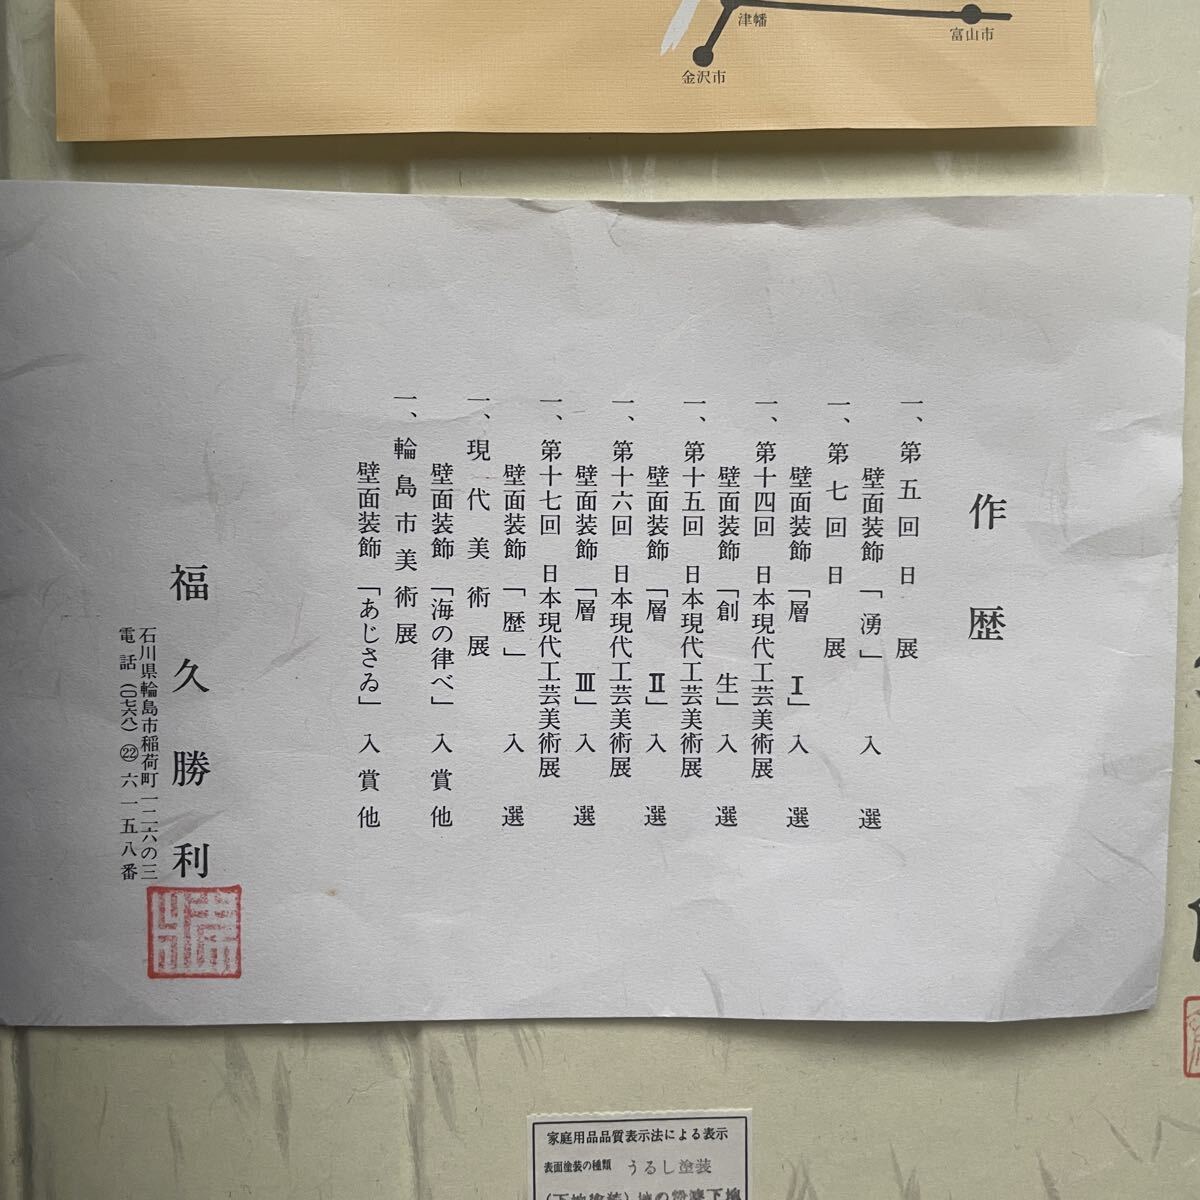 津幡
富山市
金沢市
作歴
一、第五回日展
壁面装飾「湧」入選
一、第七回日展
壁面装飾「層Ⅰ」入選
一、第十四回 日本現代工芸美術展
壁面装飾「創生」入選
一、第十五回 日本現代工芸美術展
壁面装飾「層Ⅱ」入選
一、第十六回 日本現代工芸美術展
壁面装飾「層Ⅲ」入選
一、第十七回 日本現代工芸美術展
壁面装飾「歴」入選
一、現代美術展
壁面装飾「海の律べ」入賞他
一、輪島市美術展
壁面装飾「あじさゐ」入賞他
福久勝利
石川県輪島市稲荷町一二六の三
電話(〇七六八)㉒六一五八番
家庭用品品質表示法による表示
表面塗装の種類 うるし塗装